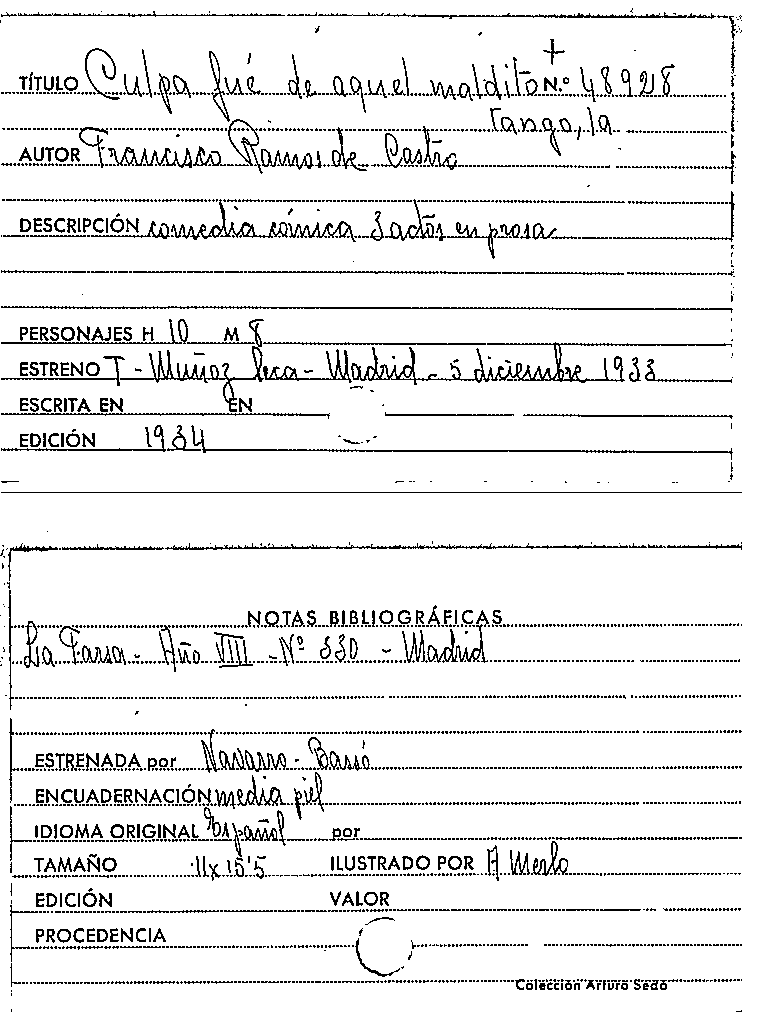 TÍTULO Culpa fué de aquel maldito N.º 48928
tango, la
AUTOR Francisco Ramos de Castro
DESCRIPCIÓN comedia cómica 3 actos en prosa
PERSONAJES H 10 M 8
ESTRENO T - Muñoz Seca - Madrid - 5 diciembre 1933
ESCRITA EN EN
EDICIÓN 1934
NOTAS BIBLIOGRÁFICAS
La Farsa - Año VIII - Nº 330 - Madrid
ESTRENADA por Navarro - Bassó
ENCUADERNACIÓN media piel
IDIOMA ORIGINAL Español por
TAMAÑO 11 x 15'5 ILUSTRADO POR A Merlo
EDICIÓN VALOR
PROCEDENCIA
Colección Arturo Sedó